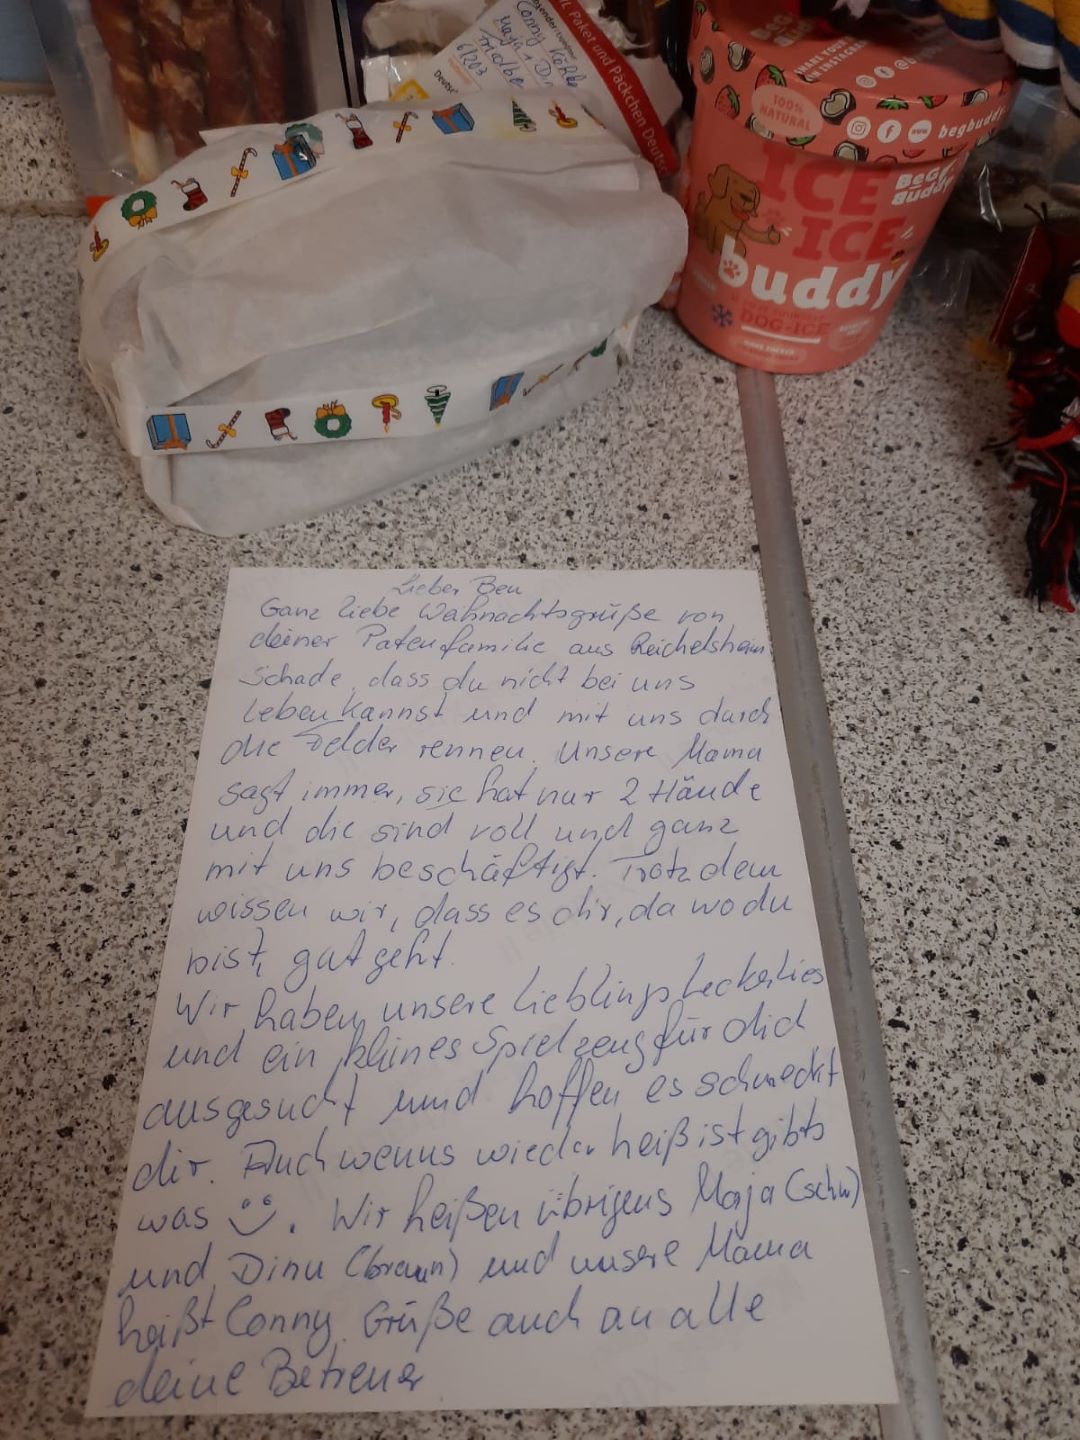 Conny Köhle
Maja + D
Friedbe
61203
Deutsc
L Paket und Päckchen Deutsc
100%
NATURAL
begbuddy
ICE
ICE
BeGG
Buddy
buddy
DOG-ICE
Lieber Ben
Ganz liebe Waihnachtsgrüße von
deiner Patenfamilie aus Reichelsheim
Schade, dass du nicht bei uns
leben kannst und mit uns durch
die Felder rennen. Unsere Mama
sagt immer, sie hat nur 2 Hände
und die sind voll und ganz
mit uns beschäftigt. Trotzdem
wissen wir, dass es dir, da wo du
bist, gut geht.
Wir haben unsere Lieblingsleckerlies
und ein kleines Spielzeug für dich
ausgesucht und hoffen es schmeckt
dir. Auch wenns wieder heiß ist gibts
was. Wir heißen übrigens Maja (schw)
und Dinu (braun) und unsere Mama
heißt Conny. Grüße auch an alle
deine Betreuer